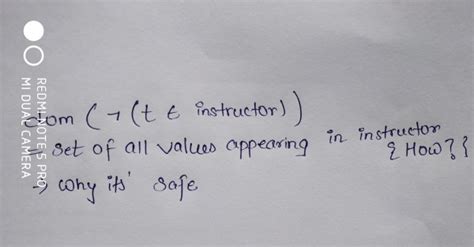 dom (¬(t ∈ instructor))
= set of all values appearing in instructor
{ How? {
→ why its' safe
REDMI NOTE 5 PRO
MI DUAL CAMERA